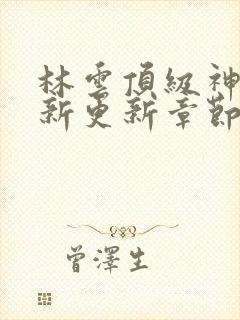 林雲頂級神
新更新章節
曾澤生